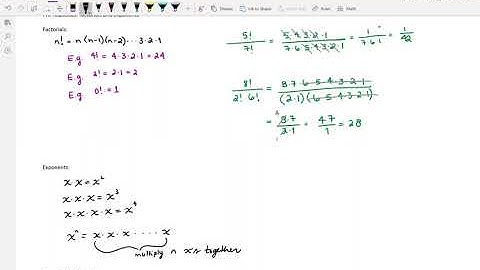 Factorials:
n! = n (n-1)(n-2)···3·2·1
E.g 4! = 4·3·2·1 = 24
E.g 2! = 2·1 = 2
E.g 0! = 1
5!/7! = 5·4·3·2·1/7·6·5·4·3·2·1 = 1/7·6·1 = 1/42
8!/2!6! = 8·7·6·5·4·3·2·1/(2·1)(6·5·4·3·2·1)
= 8·7/2·1 = 4·7/1 = 28
Exponents:
x·x = x²
x·x·x = x³
x·x·x·x = x⁴
xⁿ = x·x·x·····x
multiply n x's together